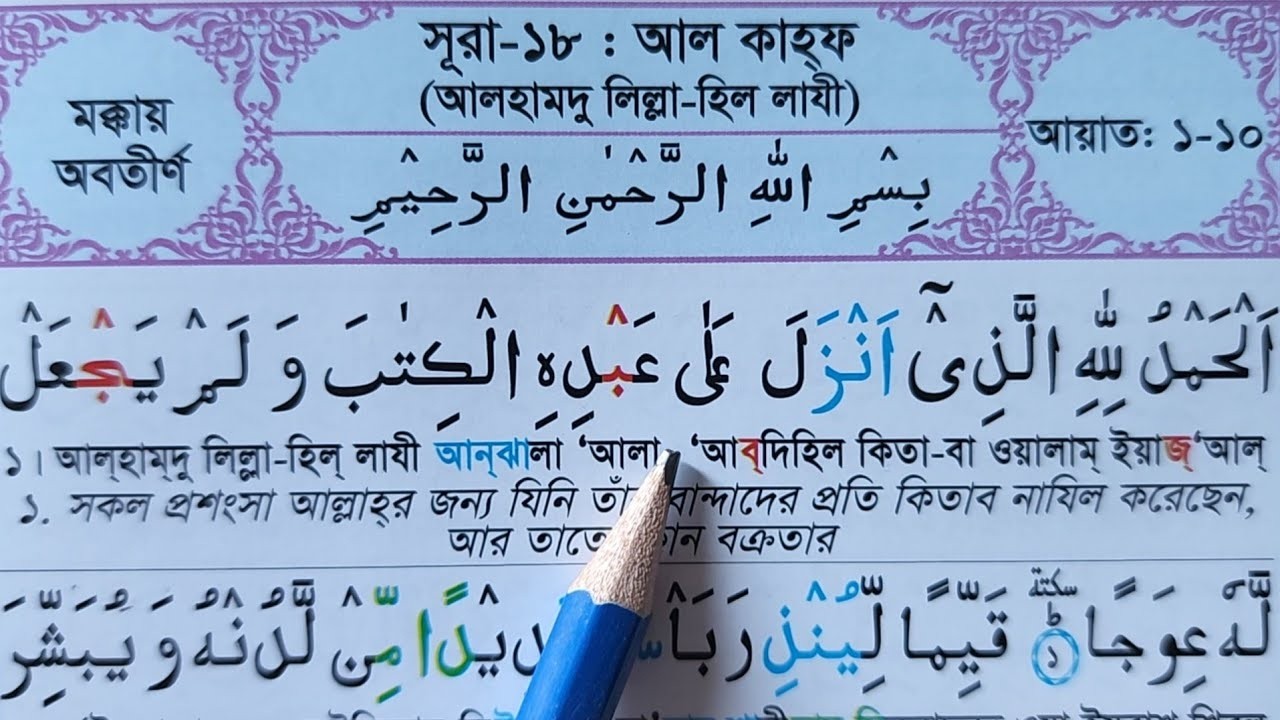 সূরা-১৮ : আল কাহ্ফ
(আলহামদু লিল্লা-হিল লাযী)
মক্কায়
অবতীর্ণ
আয়াত: ১-১০
بِسْمِ اللهِ الرَّحْمٰنِ الرَّحِيْمِ
اَلْحَمْدُ لِلّٰهِ الَّذِىْٓ اَنْزَلَ عَلٰى عَبْدِهِ الْكِتٰبَ وَ لَمْ يَجْعَلْ
১। আল্হাম্দু লিল্লা-হিল্ লাযী আন্ঝালা ‘আলা ‘আব্দিহিল কিতা-বা ওয়ালাম্ ইয়াজ্‘আল্
১. সকল প্রশংসা আল্লাহ্র জন্য যিনি বান্দাদের প্রতি কিতাব নাযিল করেছেন,
আর বক্রতার
لَّهٗ عِوَجًا ؕ سكتة ١ قَيِّمًا لِّيُنْذِرَ بَاْ مِّنْ لَّدُنْهُ وَ يُبَشِّرَ